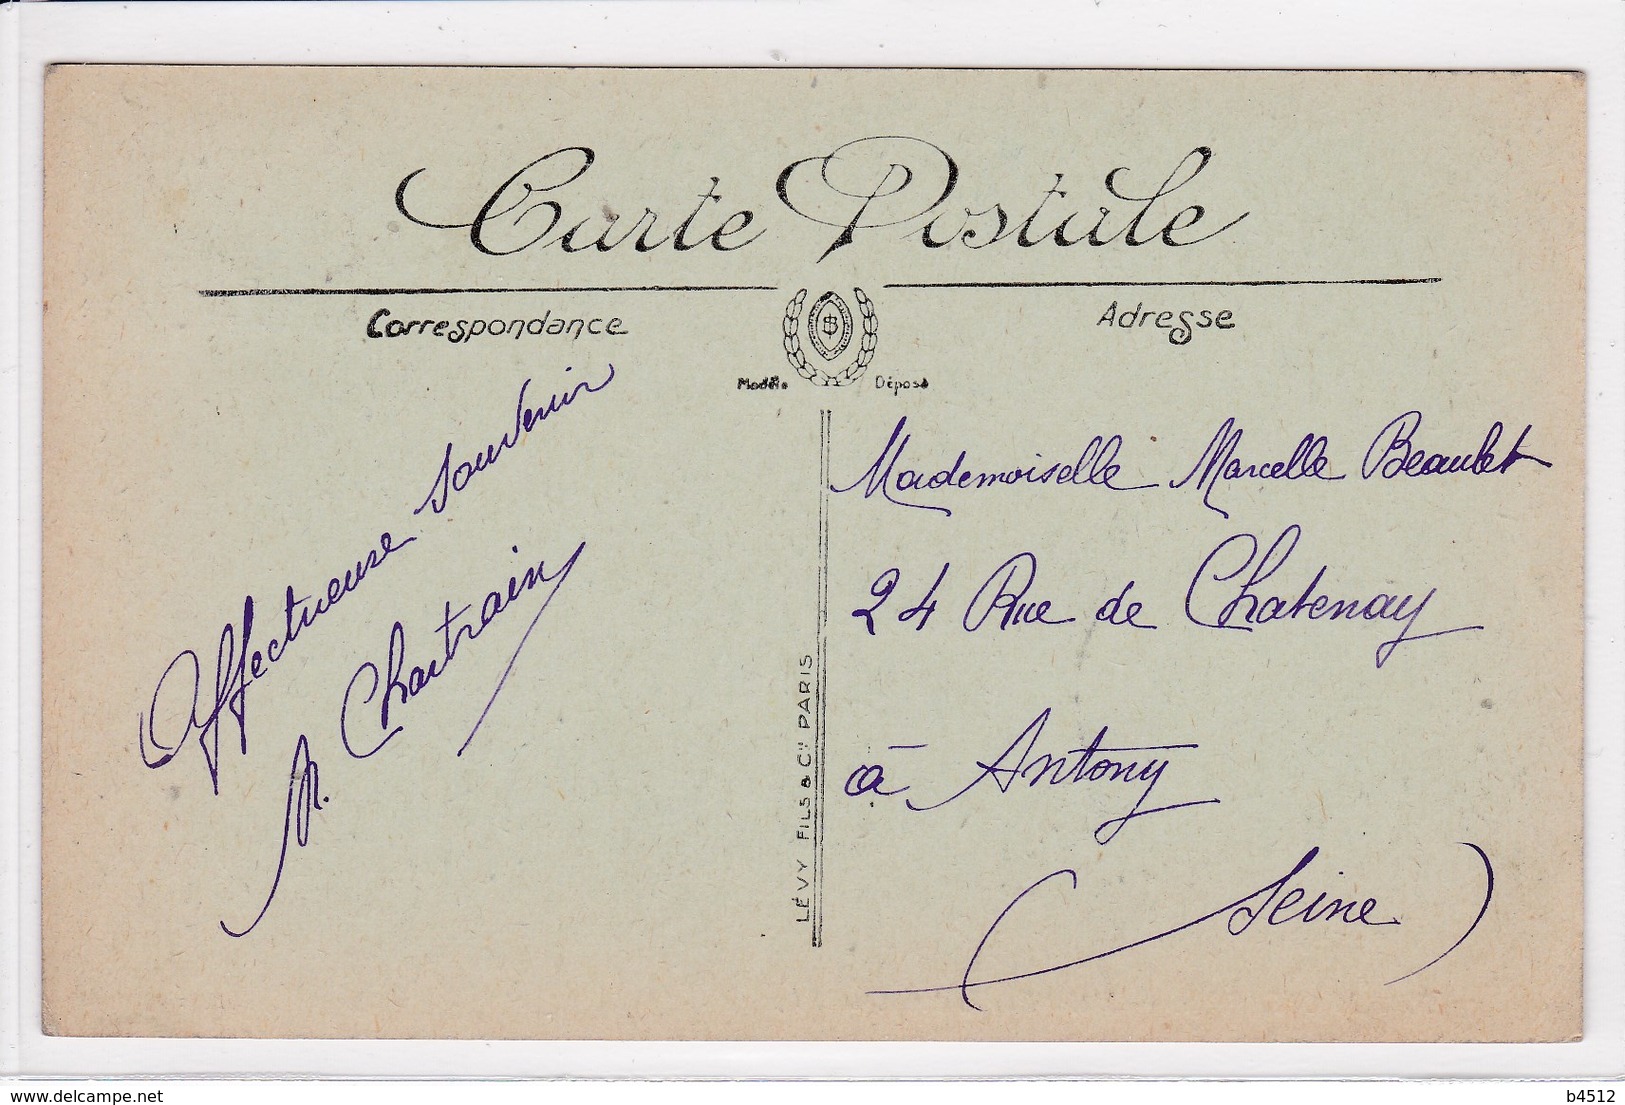 Carte Postale
Correspondance
Adresse
Modèle Déposé
Affectueuse souvenir
Chartrain
Mademoiselle Marcelle Beaulet
24 Rue de Chatenay
à Antony
(Seine)
LÉVY FILS & Cie PARIS
www.delcampe.net
b4512